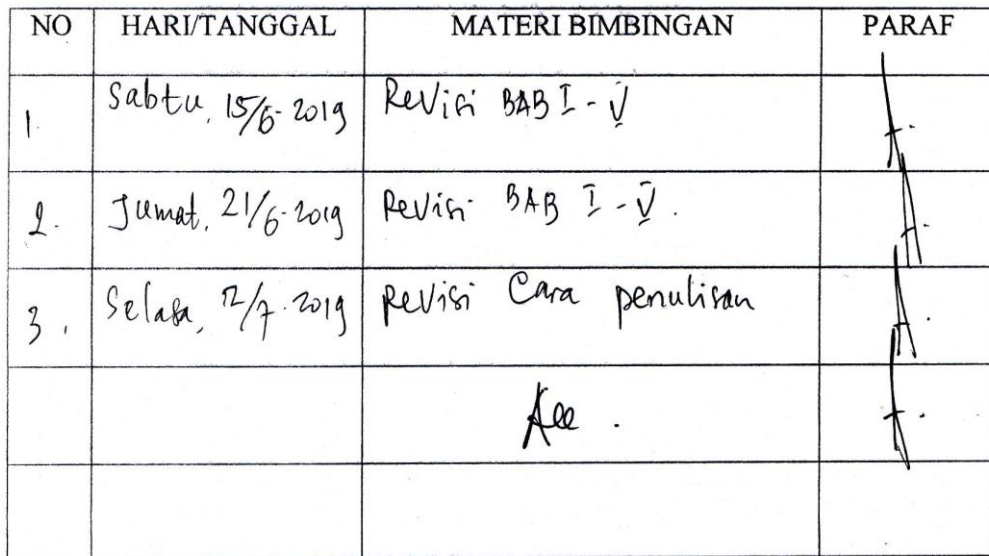 NO HARI/TANGGAL MATERI BIMBINGAN PARAF
1. Sabtu, 15/6-2019 Revisi BAB I - V
2. Jumat, 21/6-2019 Revisi BAB I - V.
3. Selasa, 12/7-2019 Revisi Cara penulisan
Acc.